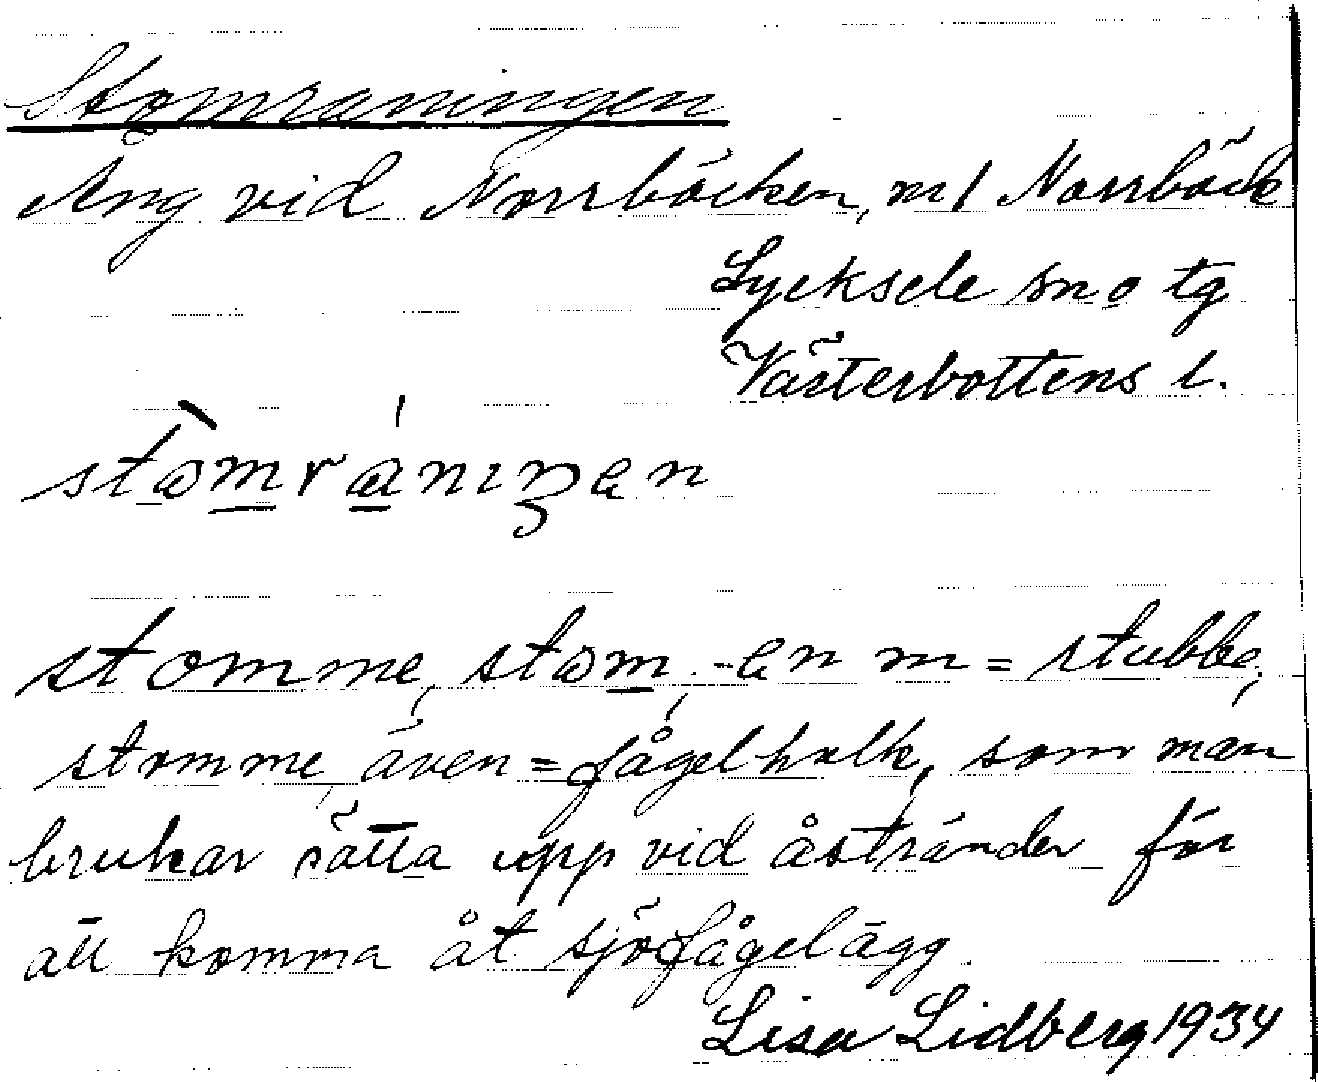 Stomraningen
Äng vid Norrbäcken, m/ Norrbäck
Lycksele sn o tg
Västerbottens l.
stòmránıŋen
stomme, stom, -en m = stubbe,
stomme, även = fågelholk, som man
brukar sätta upp vid åstränder för
att komma åt sjöfågelägg.
Lisa Lidberg 1934